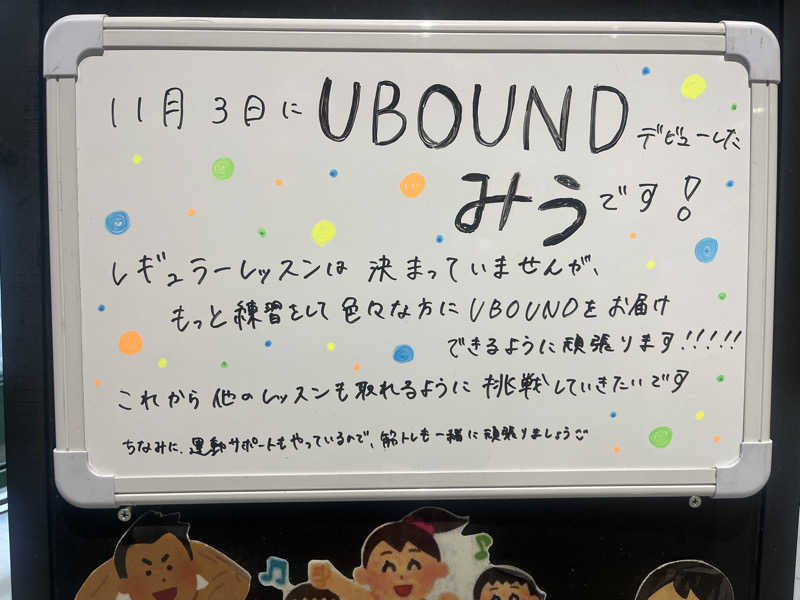 11月3日に UBOUND デビューした
みうです!
レギュラーレッスンは 決まっていませんが、
もっと練習をして色々な方にUBOUNDをお届け
できるように頑張ります!!!!!
これから他のレッスンも取れるように挑戦していきたいです
ちなみに、運動サポートもやっているので、筋トレも一緒に頑張りましょう